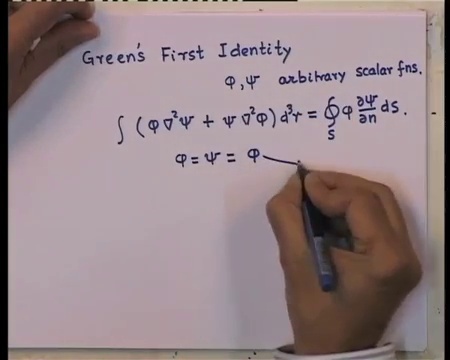 Green's First Identity
φ, ψ arbitrary scalar fns.
∫ (φ ∇²ψ + ψ ∇²φ) d³r = ∮_S φ ∂ψ/∂n dS.
φ = ψ = φ